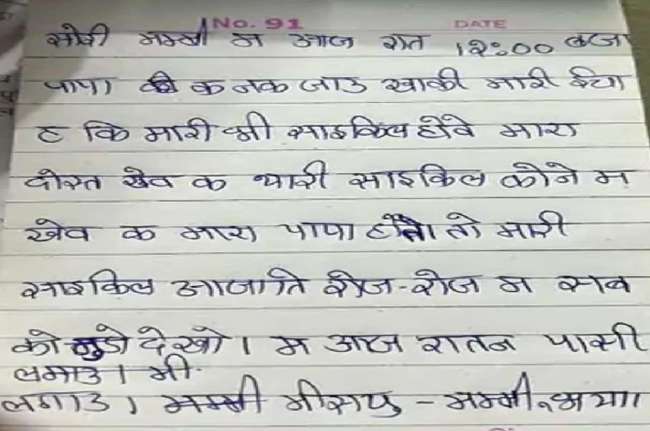 NO. 91 DATE
सोरी मम्मी म आज रात 12:00 बजा
पापा की क नक जाउ खाकी मारी ईचा
ह कि मारी भी साइकिल होवे मारा
दोस्त खेव क थारी साइकिल कोने म
खेव क मारा पापा होता तो मारी
साइकिल आजाति रोज-रोज म सब
को मुडो देखो। म आज रातन पासी
लमाउ। मी
लगाउ। मम्मी मीसयु - मम्मी,